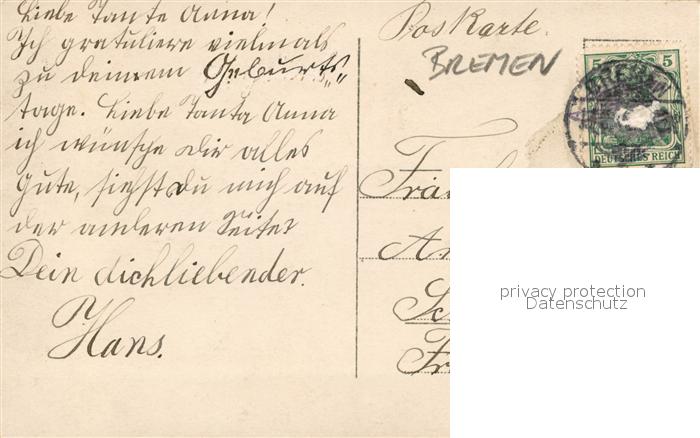 Liebe Tante Anna!
Ich gratuliere vielmals
zu deinem Geburts„
tage. Liebe Tanta Anna
ich wünsche Dir alles
Gute, siehst Du mich auf
der anderen Seite?
Dein dichliebender.
Hans.
Postkarte.
BREMEN
5 5
DEUTSCHES REICH
privacy protection
Datenschutz